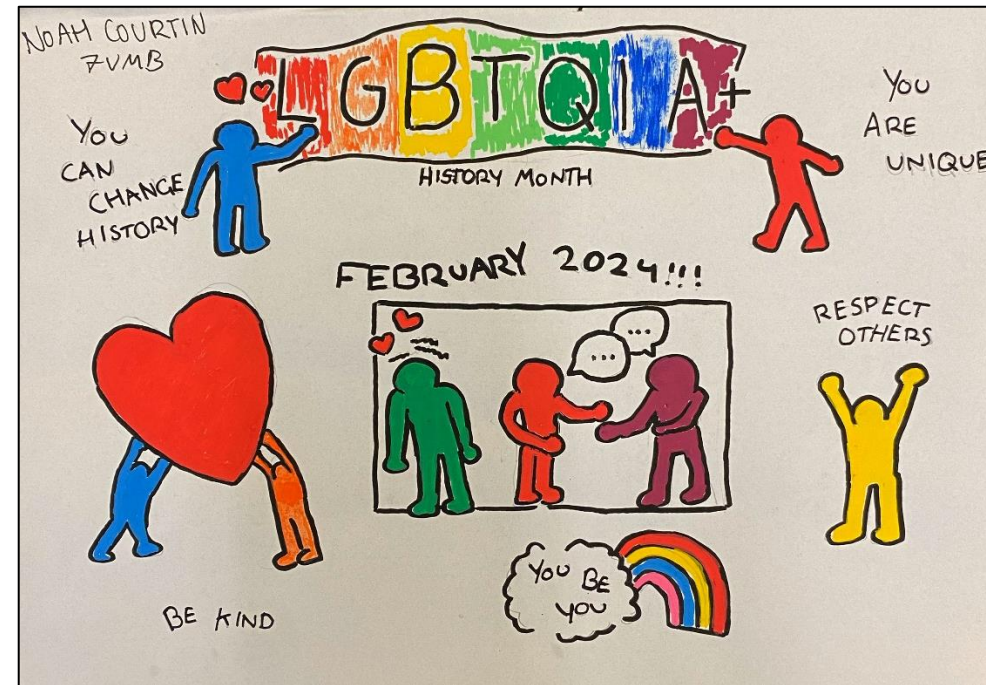 NOAH COURTIN
7VMB
LGBTQIA+
HISTORY MONTH
YOU
CAN
CHANGE
HISTORY
YOU
ARE
UNIQUE
FEBRUARY 2024!!!
...
...
RESPECT
OTHERS
BE KIND
YOU BE
YOU